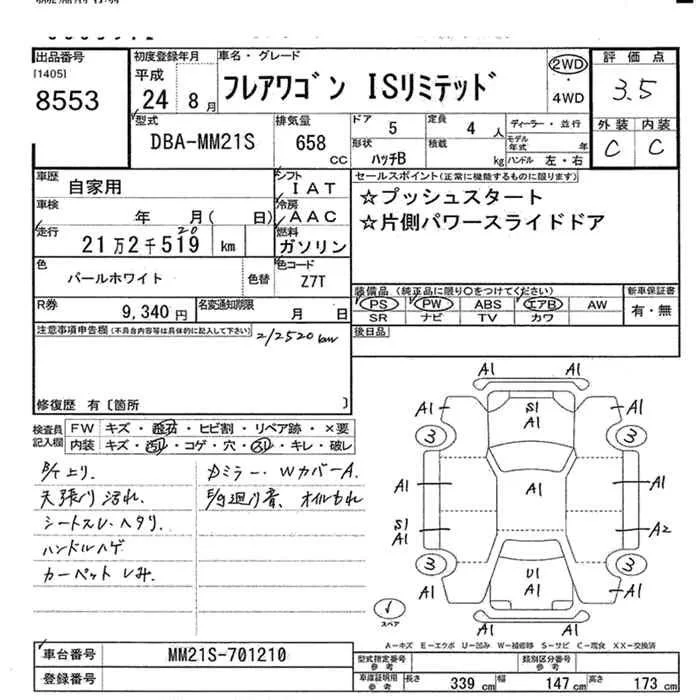 出品番号
[1405]
8553
初度登録年月
平成
24 年 8 月
車名・グレード
フレアワゴン ISリミテッド
2WD
・
4WD
評価点
3.5
外装 内装
C C
型式
DBA-MM21S
排気量
658 CC
ドア 5
定員 4 人
形状 ハッチB
積載 kg
ディーラー・並行
モデル年式 年
ハンドル 左・右
車歴
自家用
車検
年 月( 日)
走行
21万2千519 km
20
シフト
IAT
冷房
AAC
燃料
ガソリン
色
パールホワイト
色替
色コード
Z7T
R券
9,340円
名変通知期限
月 日
セールスポイント(正常に機能するものに限ります)
☆プッシュスタート
☆片側パワースライドドア
装備品(純正品に限り○をつけてください)
PS PW ABS エアB AW
SR ナビ TV カワ
新車保証書
有・無
後日品
注意事項申告欄(不具合内容等は具体的に記入して下さい)
212520km
修復歴 有〔箇所 〕
検査員記入欄
FW キズ・飛石・ヒビ割・リペア跡・×要
内装 キズ・汚れ・コゲ・穴・スレ・キレ・破レ
天張り汚れ、
シートスレ・ヘタリ、
ハンドルハゲ
カーペットしみ、
Dミラー・WカバーA、
E/g廻り音、オイルもれ
A1 A1
A1 S1 A1 A1
3 3
A1 A1 A1
S1 A1 A2
3 3
A1 U1 A1 A1
A1 A1
スペア
A－キズ E－エクボ U－凹み W－補修跡 S－サビ C－腐食 XX－交換済
車台番号
MM21S-701210
登録番号
型式指定番号 参考
類別区分番号 参考
車庫証明用 参考
長さ 339 cm
幅 147 cm
高さ 173 cm